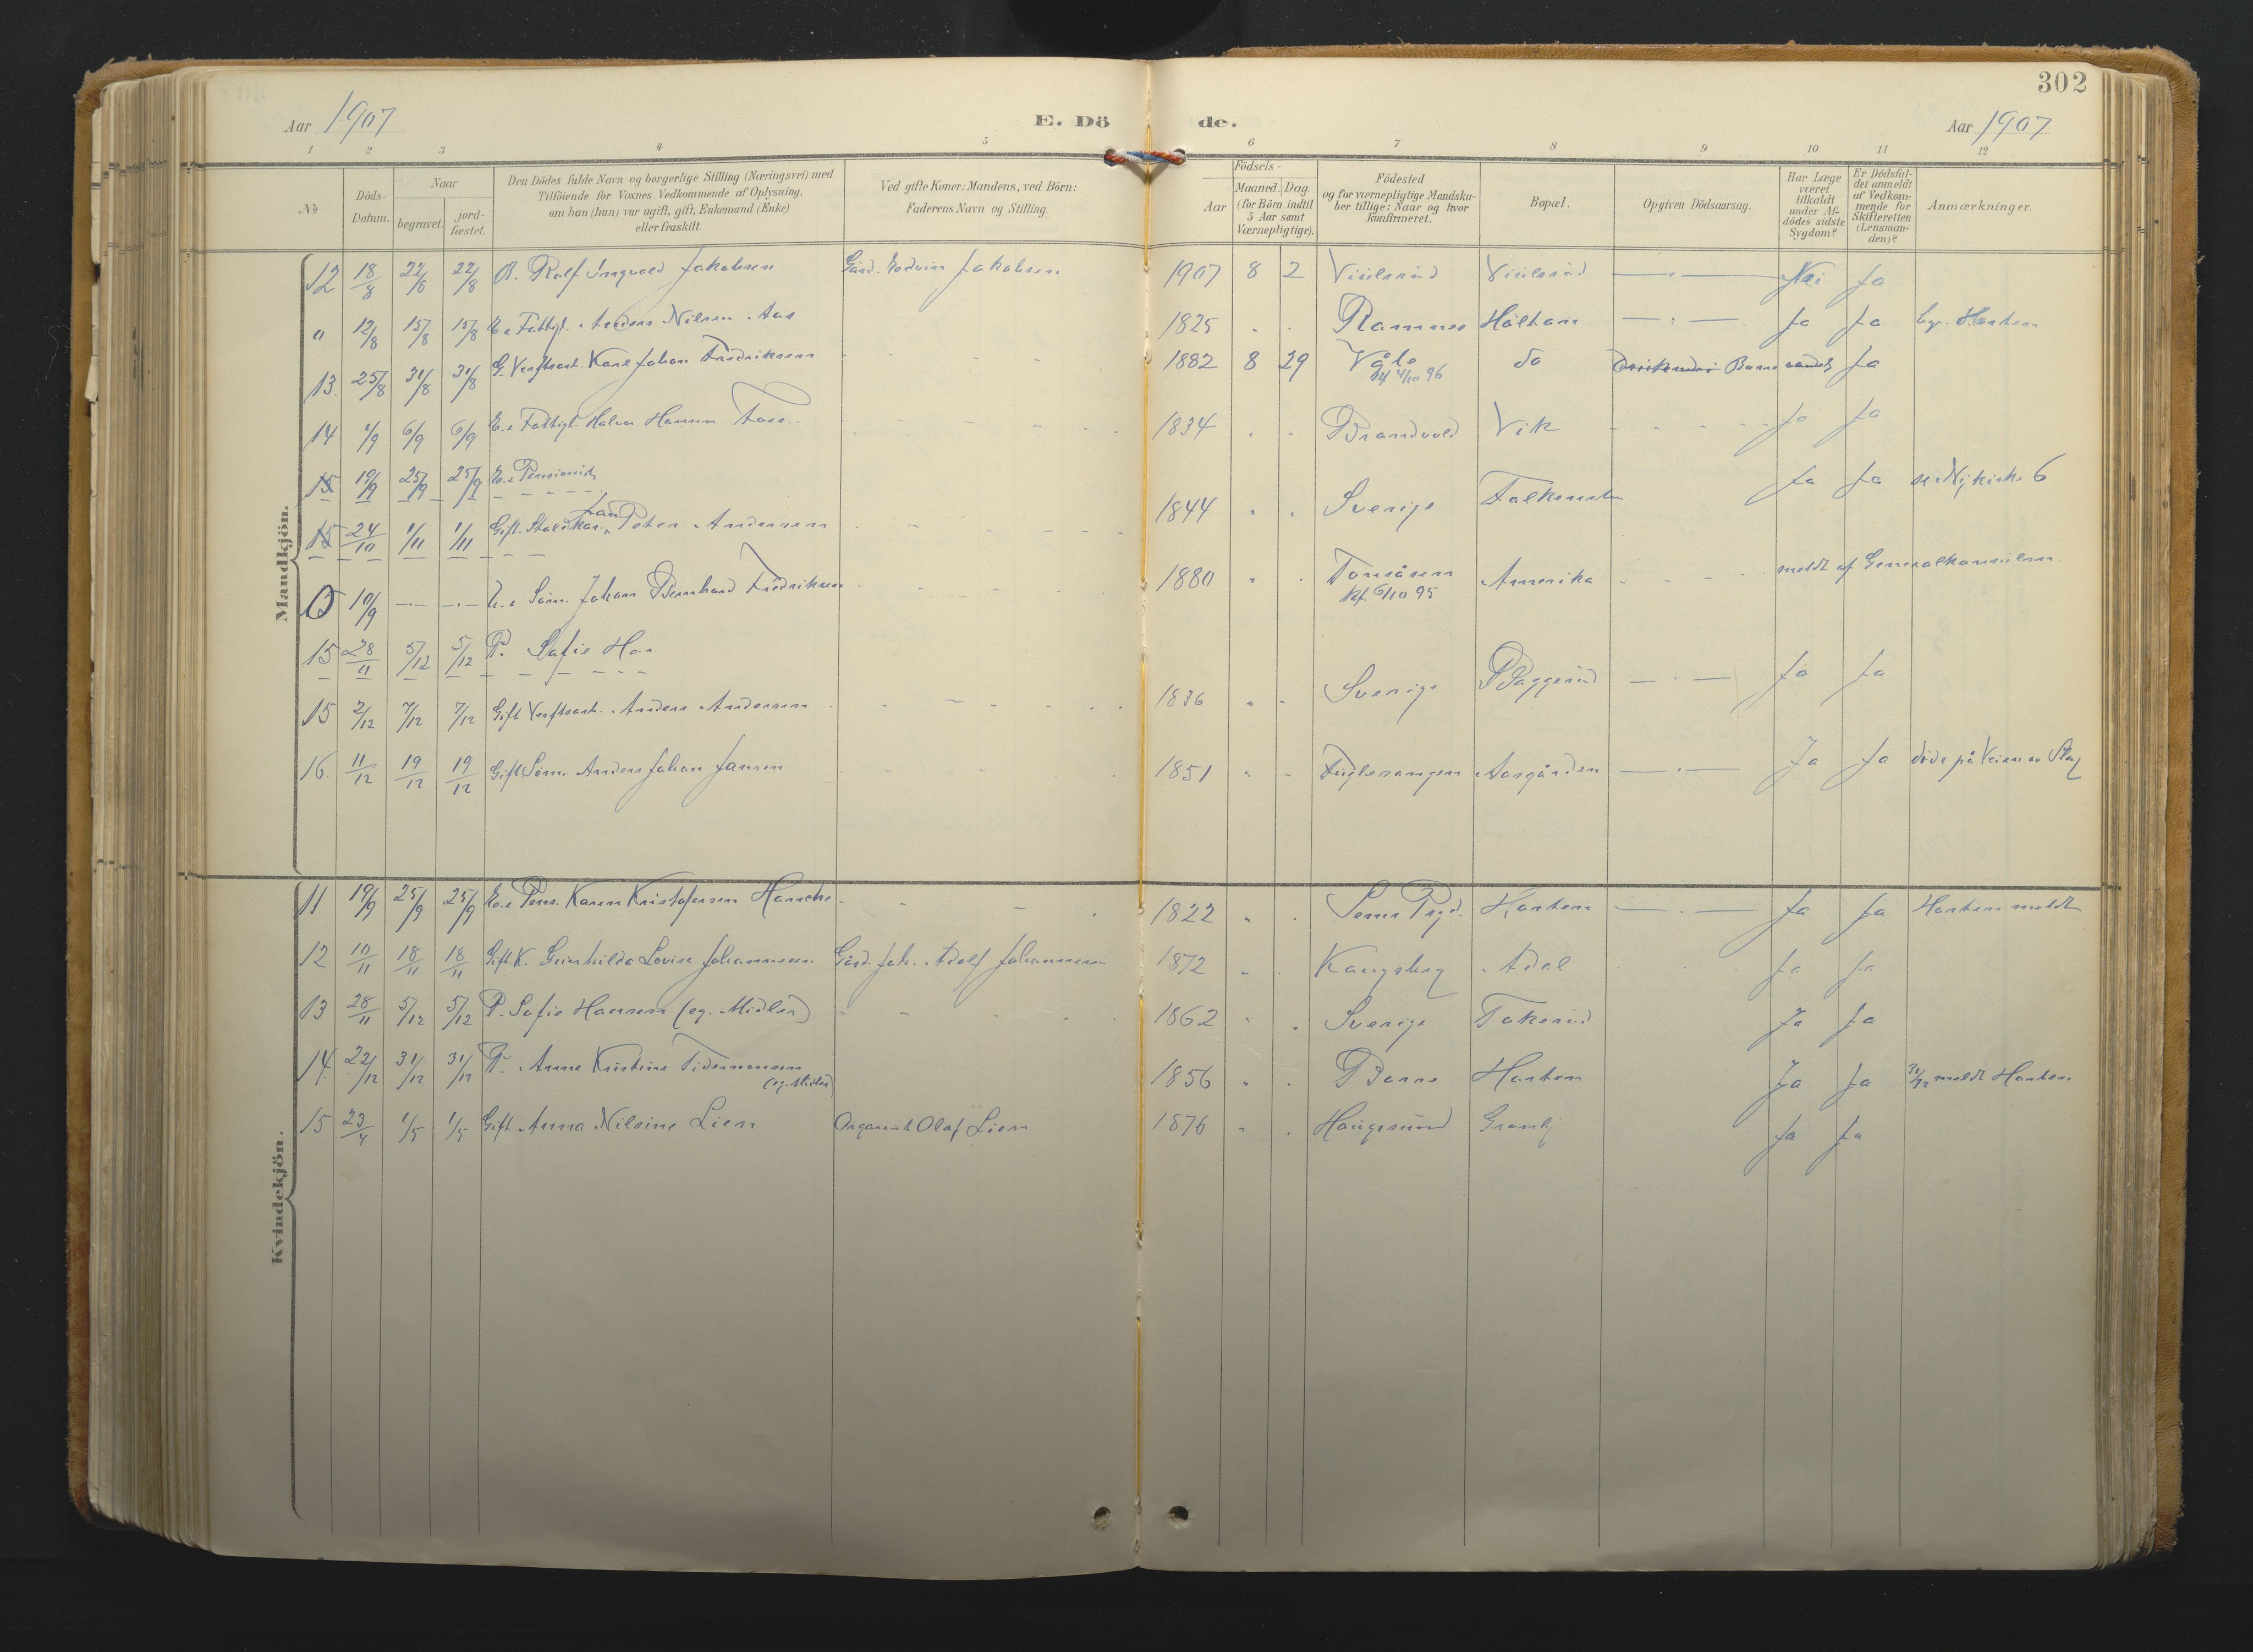 302
Aar 1907
E. Dö de.
Aar 1907
1 2 3 4 5 6 7 8 9 10 11 12
No
Döds-
Datum.
Naar
begravet.
jord-
fæstet.
Den Dödes fulde Navn og borgerlige Stilling (Næringsvei) med
Tilföiende for Voxnes Vedkommende af Oplysning,
om han (hun) var ugift, gift, Enkemand (Enke)
eller fraskilt.
Ved gifte Koner: Mandens, ved Börn:
Faderens Navn og Stilling.
Födsels-
Aar
Maaned. Dag.
(for Börn indtil
5 Aar samt
Værnepligtige).
Födested
og for værnepligtige Mandska-
ber tillige: Naar og hvor
konfirmeret.
Bopæl.
Opgiven Dödsaarsag.
Har Læge
været
tilkaldt
under Af-
dödes sidste
Sygdom?
Er Dödsfal-
det anmeldt
af Vedkom-
mende for
Skifteretten
(Lensman-
den)?
Anmærkninger.
Mandkjön.
12 18/8 22/8 22/8 B. Rolf Ingvald Jakobsen Gård. Edvin Jakobsen 1907 8 2 Viulsrud Viulsrud — · — Nei Ja
" 12/8 15/8 15/8 E. Fattigl. Anders Nilsen Aas 1825 Ramnes Håltan — · — Ja Ja Horten
13 25/8 31/8 31/8 G. Verftsarb. Karl Johan Fredriksen 1882 8 29 Våle do Borre Ja
4/10 96
14 6/9 6/9 E. Fattigl. Halvor Hansen 1834 Brandvold Vik Ja Ja
15 19/9 25/9 25/9 E. Pensionist
Ja Ja se Nykirke 6
Jan
15 24/10 1/11 1/11 Gift. Staldkar. Peter Andersen 1844 Sverige Falkensten
10/9 — · — — · — Söm. Johan Bernhard Fredriksen 1880 Tonsåsen Amerika meldt af Generalkonsulen
Kf. 6/10 95
15 28/11 5/12 5/12 P. Sofie Han
15 2/12 7/12 7/12 Gift Verftsarb. Anders Andersen 1836 Sverige Baggerud — · — Ja Ja
16. 11/12 19/12 19/12 Gift Söm. Anders Johan Jansen 1851 Fuglevangen Aasgården — · — Ja Ja döde på Veien
Kvindekjön.
11 19/9 25/9 25/9 E. Pens. Karen Kristofersen Hansche 1822 Sems Pgd. Horten — · — Ja Ja Horten meldt
12 10/11 18/11 18/11 Gift K. Gunhilda Lovise Johannesen Gård. Joh. Adolf Johannesen 1872 Kongsberg Adal Ja Ja
13 28/11 5/12 5/12 P. Sofie Hansen (eg. Midler) 1862 Sverige Takerud Ja Ja
14 22/12 31/12 31/12 P. Anne Kristine Tidemansen 1856 Borre Horten Ja Ja 31/12 meldt Horten
(eg. Midler)
15 23/4 1/5 1/5 Gift Anna Nilsine Lien Organist Olaf Lien 1876 Haugesund Granly Ja Ja